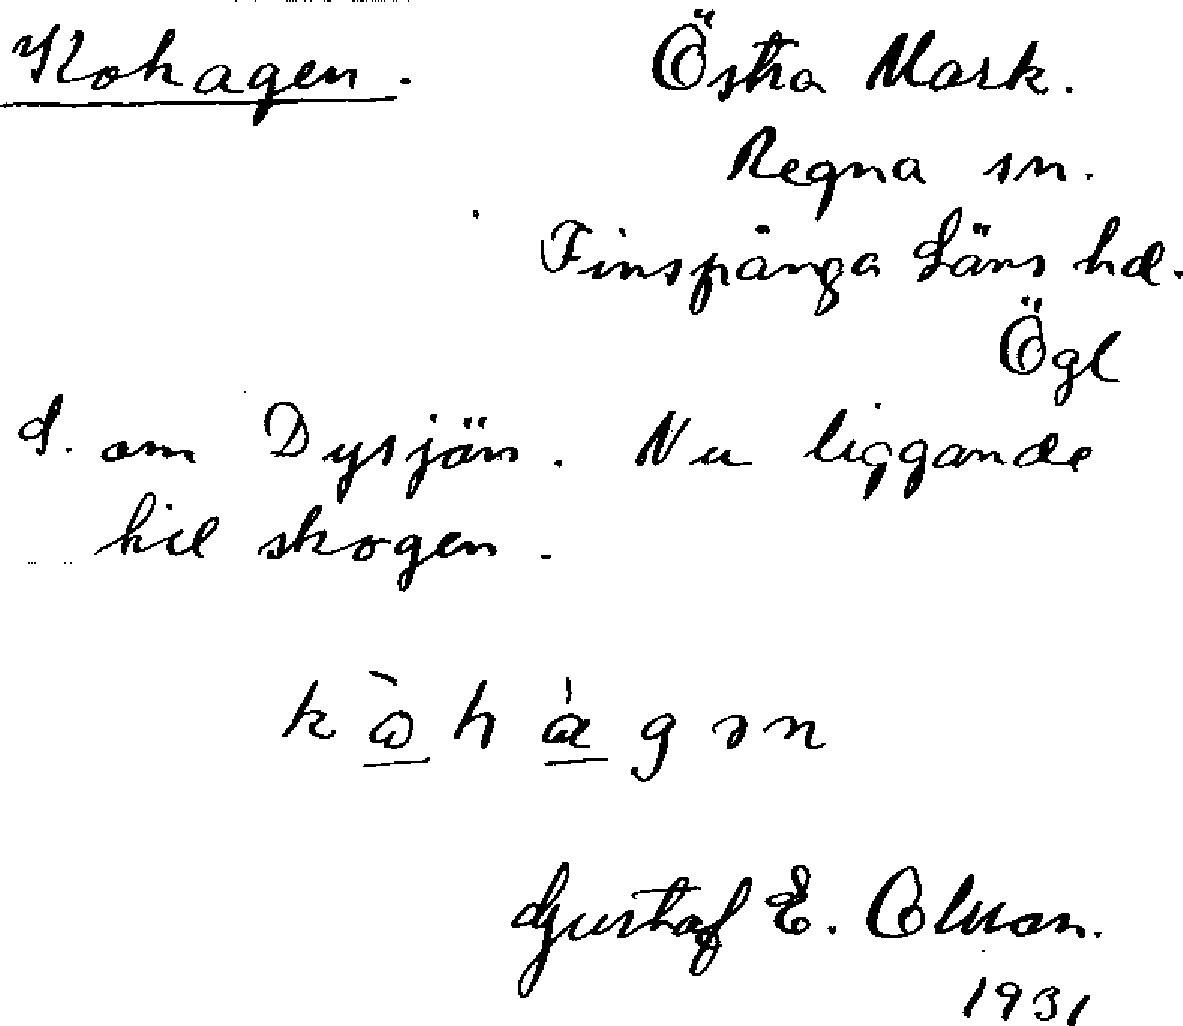 Kohagen.
Östra Mark.
Regna sn.
Finspånga Läns hd.
Ögl
S. om Dysjön. Nu liggande
till skogen.
kòhágən
Gustaf E. Olsson.
1931